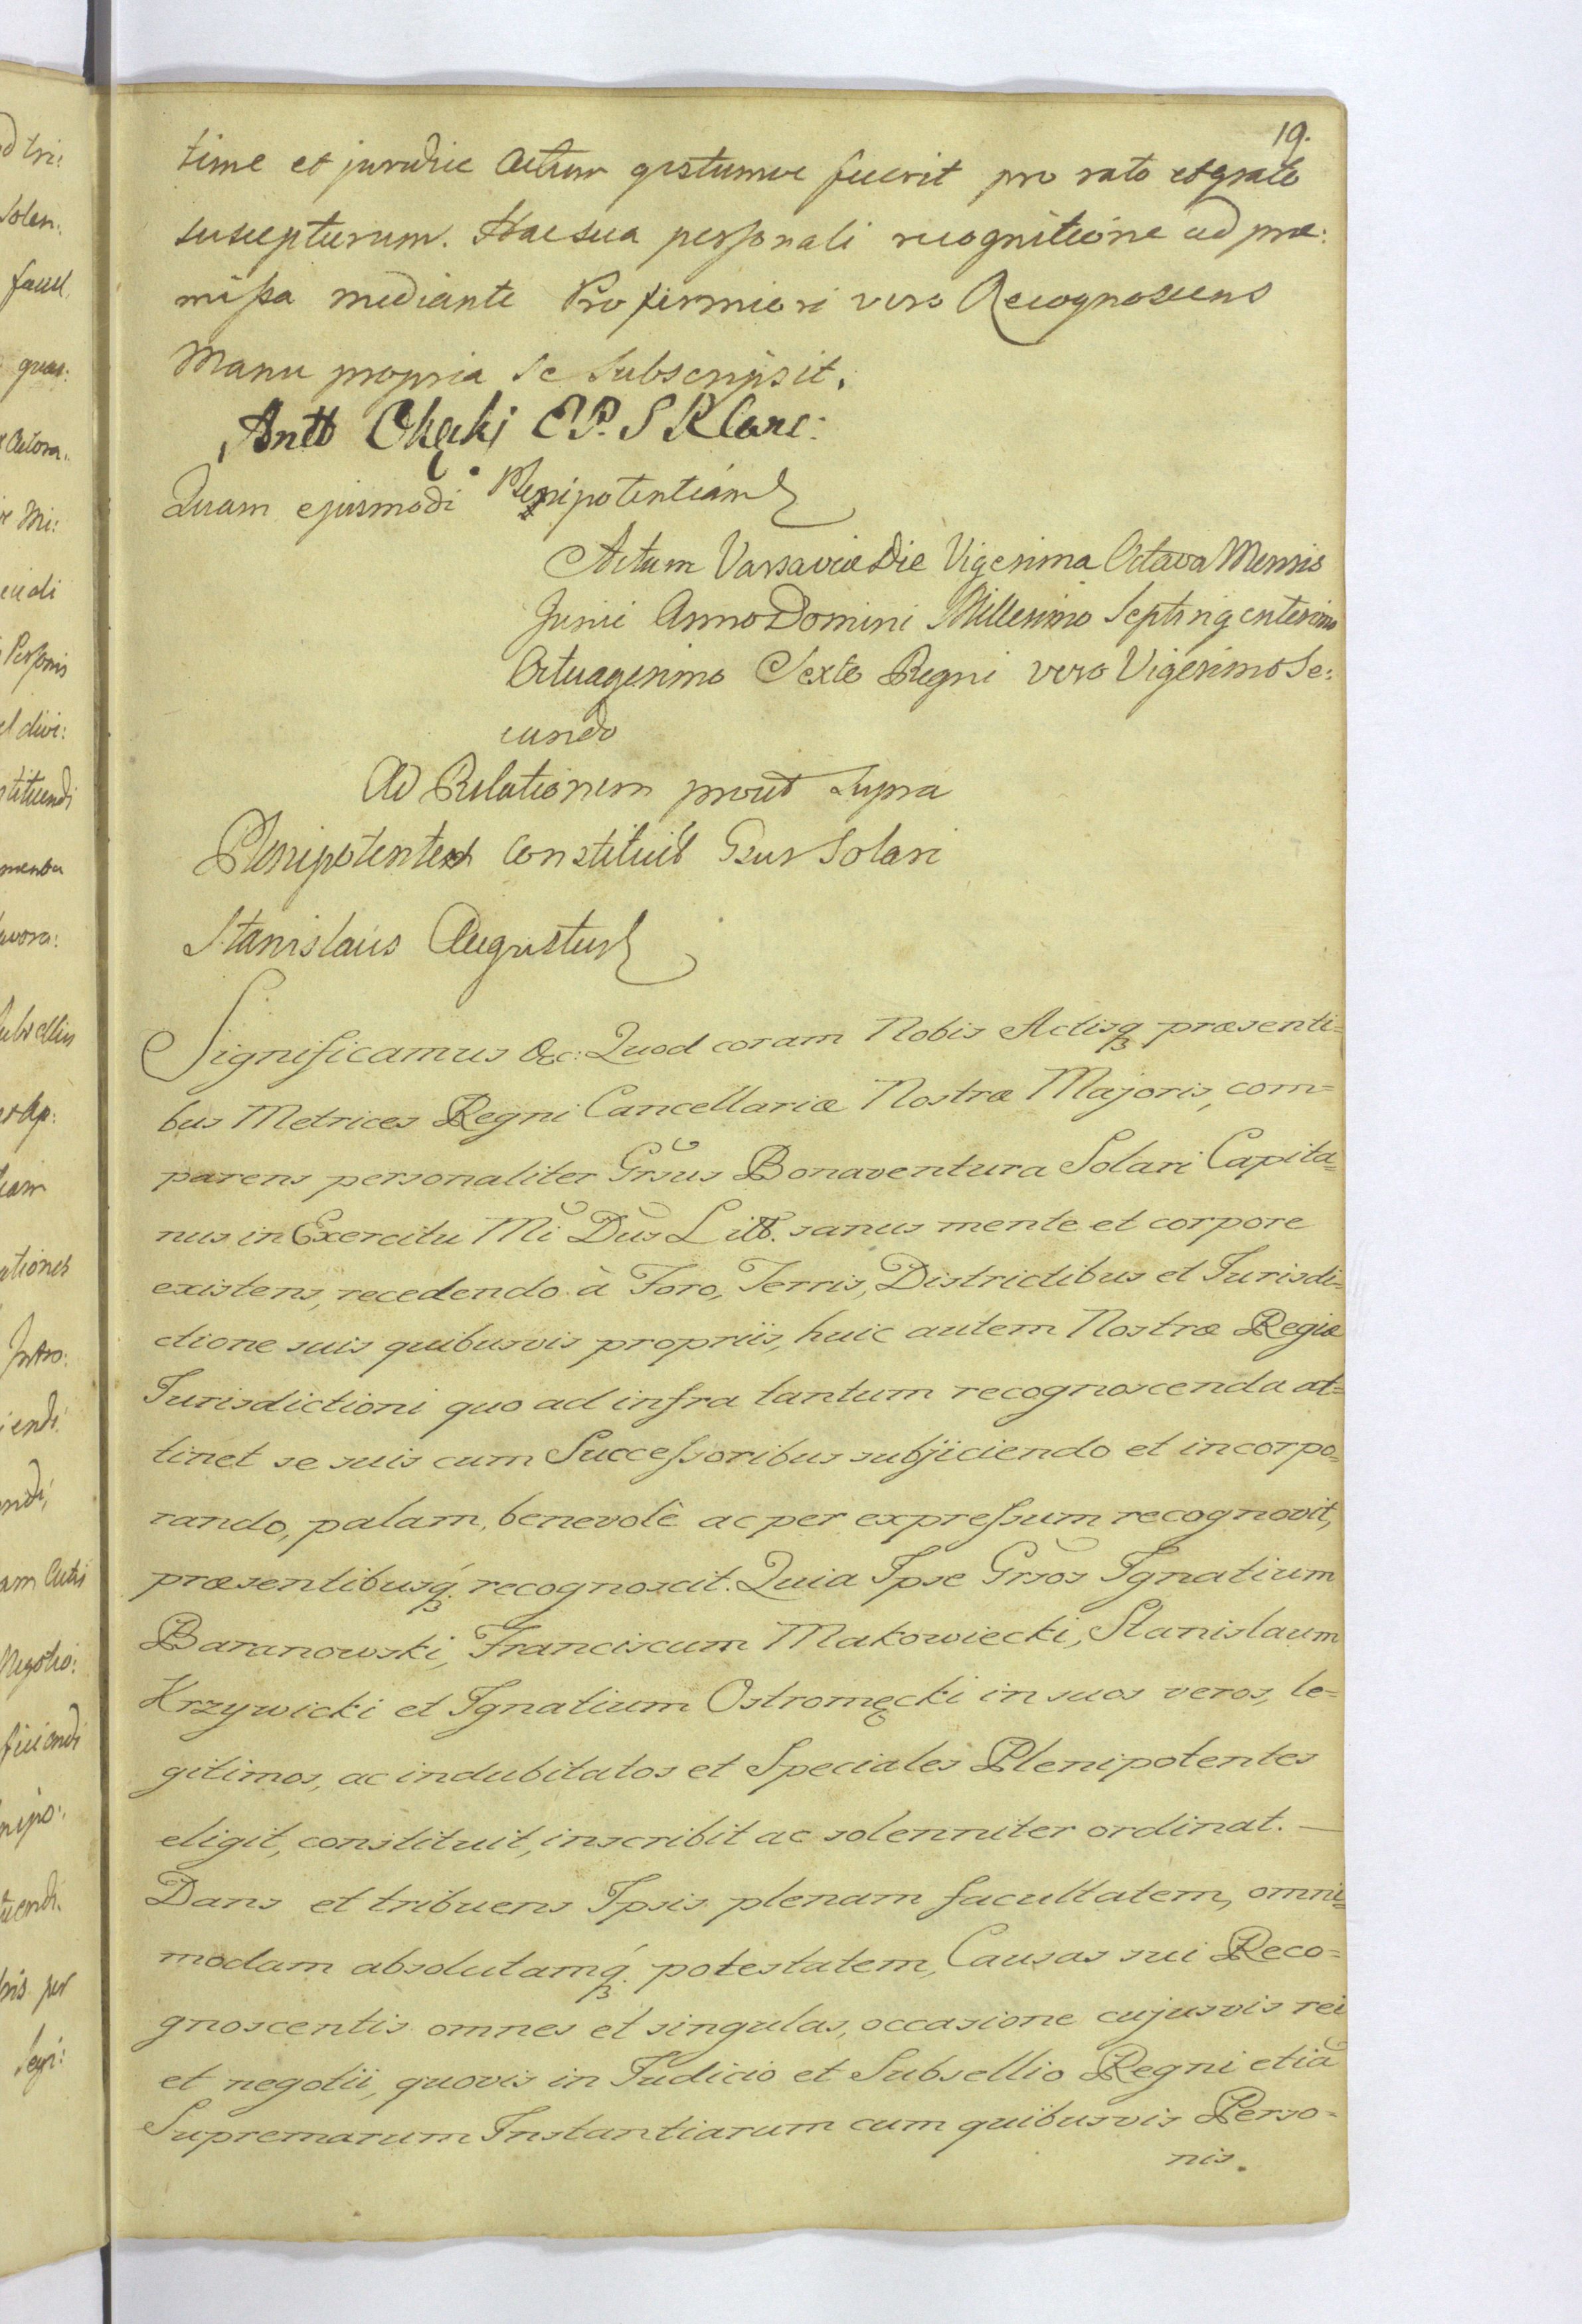 19.
time et juridice Actum gestumve fuerit pro rato et grato
suscepturum. Hac sua personali recognitione ad præ:
mißa mediante Pro firmiori vero Recognoscens
Manu propria se subscripsit.
Antt Okęcki E P. S R Canc:
Quam ejusmodi Plenipotentiam
Actum Varsaviæ Die Vigesima Octava Mensis
Junii Anno Domini Millesimo Septingentesimo
Octuagesimo Sexto Regni vero Vigesimo Se:
cundo
Ad Relationem prout supra
Plenipotentes Constituit Gsus Solari
Stanislaus Augustus
Significamus &c: Quod coram Nobis Actisq præsenti=
bus Metrices Regni Cancellariæ Nostræ Majoris, com=
parens personaliter Grsus Bonaventura Solari Capita=
nus in Exercitu Mi Dus Litt. sanus mente et corpore
existens, recedendo à Foro, Terris, Districtibus et Jurisdi=
ctione suis quibusvis propriis, huic autem Nostræ Regiæ
Jurisdictioni quo ad infra tantum recognoscenda at=
tinet se suis cum Succeſsoribus subjiciendo et incorpo=
rando, palam, benevolè ac per expreſsum recognovit,
præsentibusq. recognoscit. Quia Ipse Grsos Ignatium
Baranowski, Franciscum Makowiecki, Stanislaum
Krzywicki et Ignatium Ostromęcki in suos veros, le=
gitimos, ac indubitatos et Speciales Plenipotentes
eligit, constituit, inscribit ac solenniter ordinat. —
Dans et tribuens Ipsis plenam facultatem, omni=
modam absolutamq. potestatem, Causas sui Reco=
gnoscentis omnes et singulas, occasione cujusvis rei
et negotii, quovis in Judicio et Subsellio Regni etiã
Supremarum Instantiarum cum quibusvis Perso=
nis.